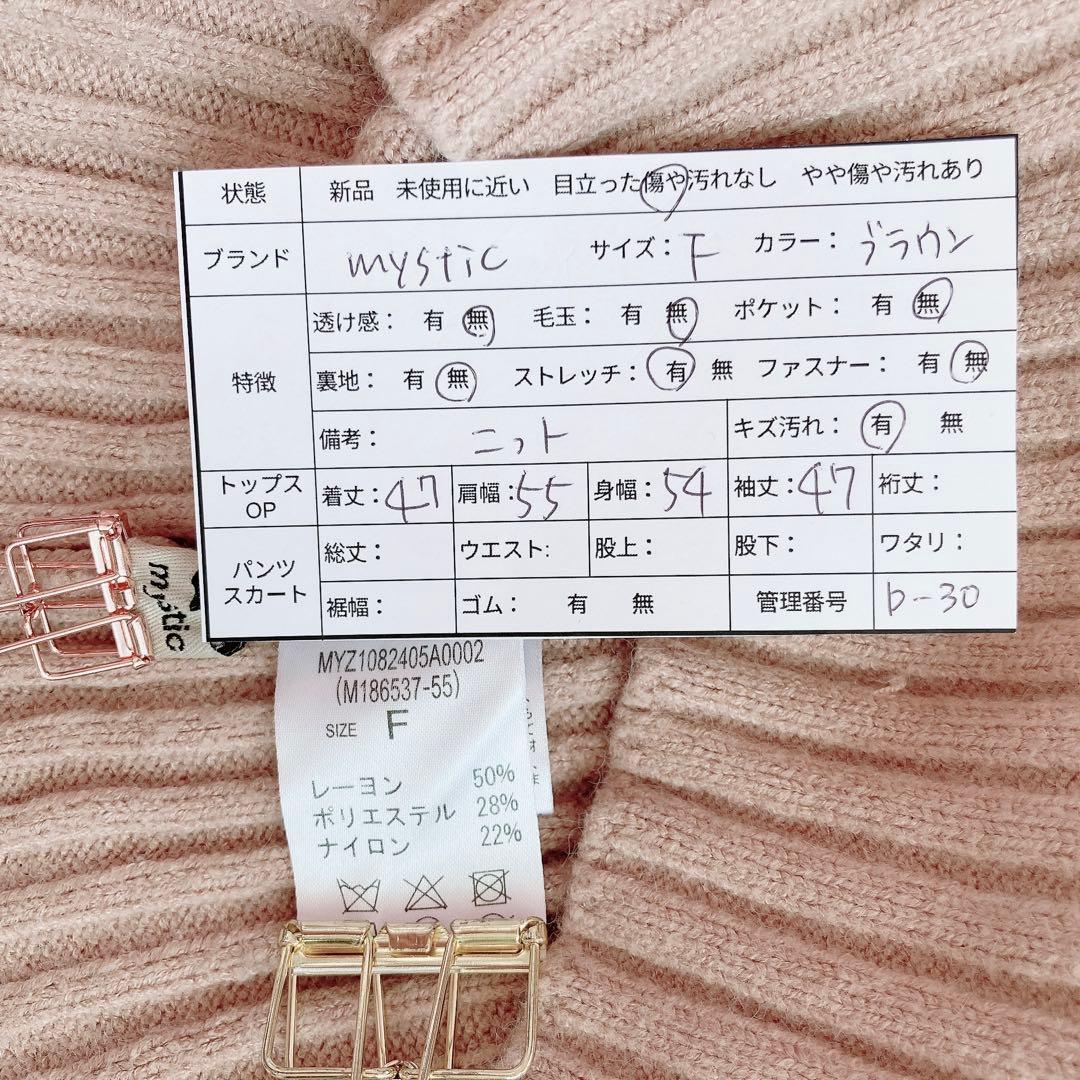 状態 新品 未使用に近い 目立った傷や汚れなし やや傷や汚れあり
ブランド mystic サイズ: F カラー: ブラウン
特徴
透け感: 有 無 毛玉: 有 無 ポケット: 有 無
裏地: 有 無 ストレッチ: 有 無 ファスナー: 有 無
備考: ニット キズ汚れ: 有 無
トップス OP 着丈:47 肩幅:55 身幅:54 袖丈:47 裄丈:
パンツ スカート
総丈: ウエスト: 股上: 股下: ワタリ:
裾幅: ゴム: 有 無 管理番号 b-30
mystic
MYZ1082405A0002
(M186537-55)
SIZE F
レーヨン 50%
ポリエステル 28%
ナイロン 22%